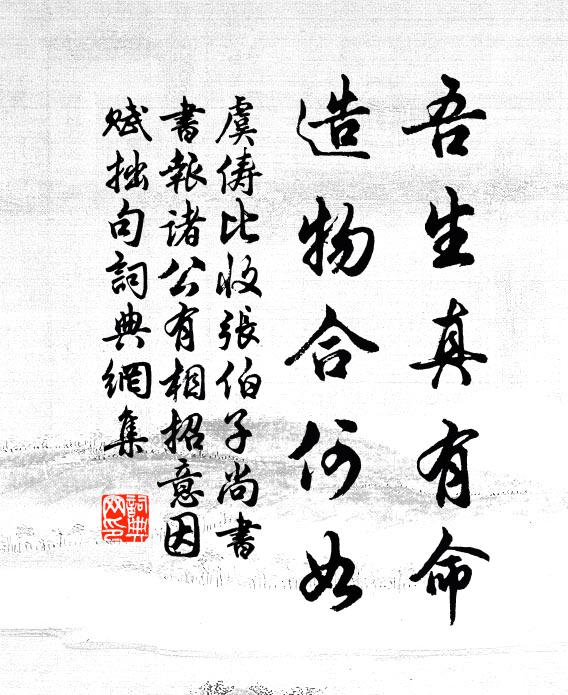 吾生真有命
造物合何如
虞俦比收張伯子尚書
書報诸公有相招意因
赋拙句詞典網集
詞典
网印